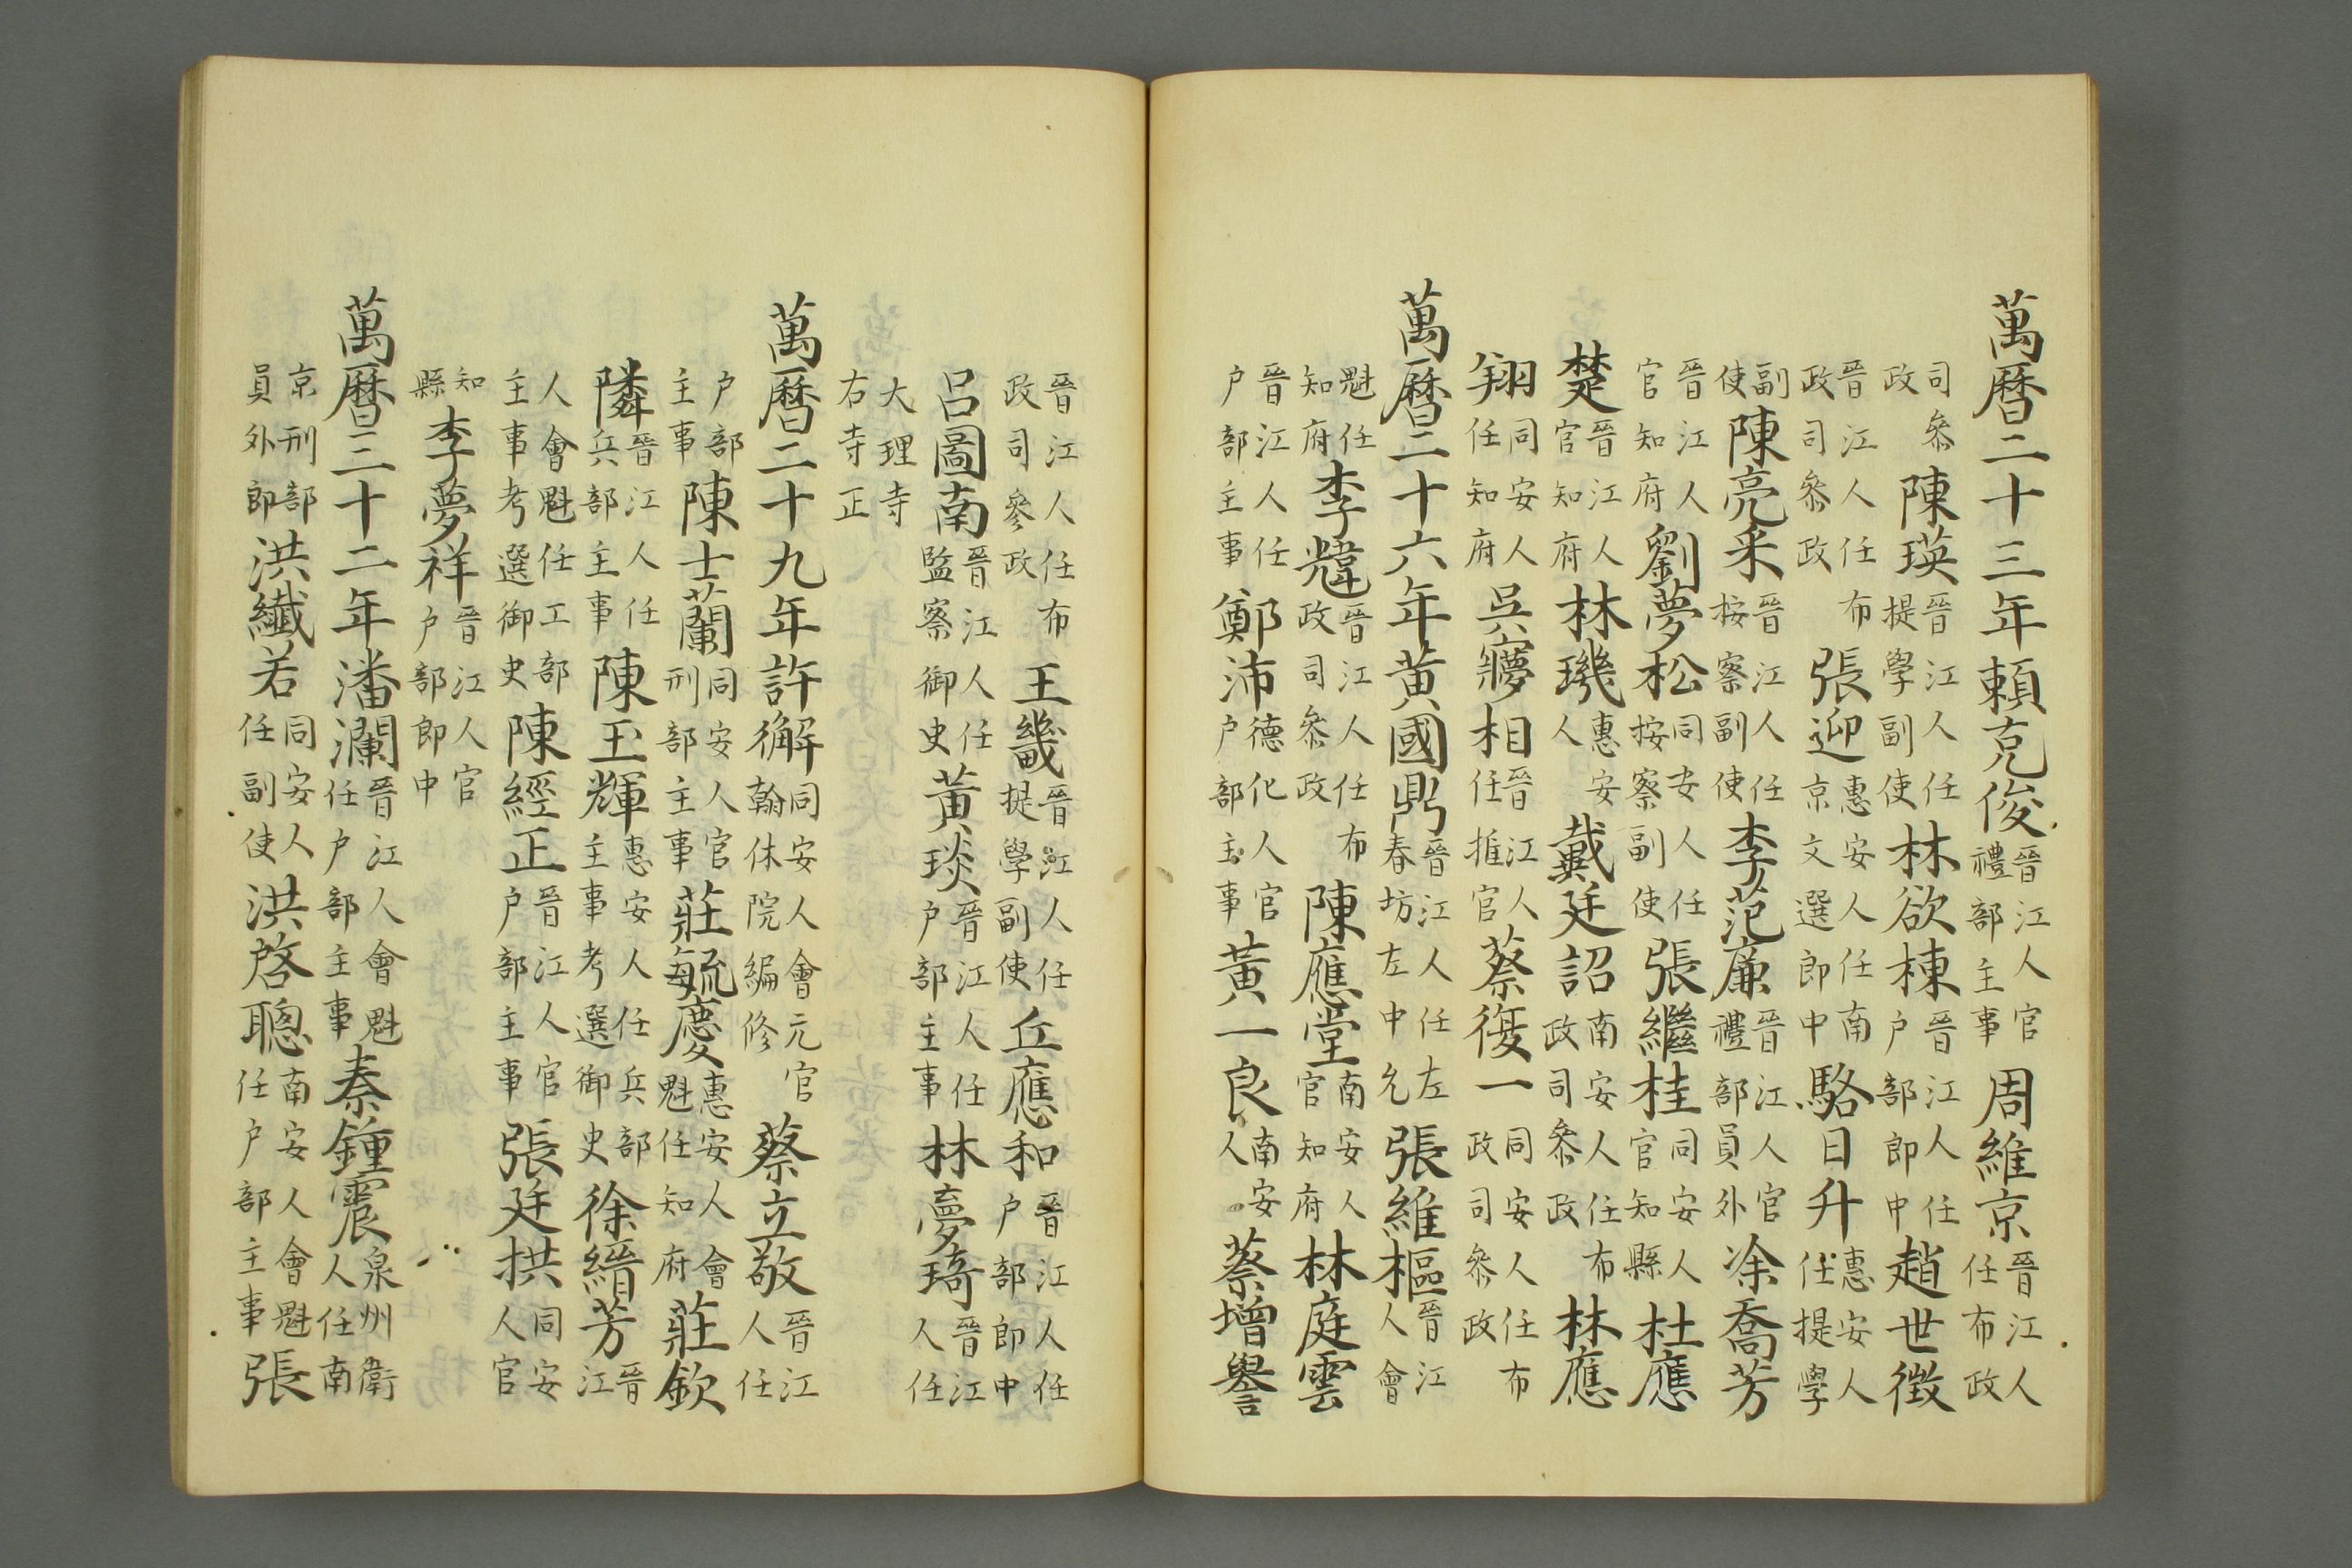 萬曆二十三年賴克俊晉江人官禮部主事周維京晉江人任布政
司叅政陳瑛晉江人任提學副使林欲棟晉江人任户部郎中趙世徴
晉江人任布政司叅政張迎惠安人任南京文選郎中駱日升惠安人任提學
副使陳亮采晉江人任按察副使李范廉晉江人官禮部員外凃喬芳
晉江人官知府劉夢松同安人任按察副使張繼桂同安人官知縣杜應
楚晉江人官知府林璣惠安人戴廷詔南安人任布政司叅政林應
翔同安人任知府吳寱相晉江人任推官蔡復一同安人任布政司叅政
萬曆二十六年黃國鼎晉江人任左春坊左中允張維樞晉江人會
魁任知府李韑晉江人任布政司叅政陳應堂南安人官知府林庭雲
晉江人任户部主事鄭沛德化人官户部主事黃一良南安人蔡增譽
晉江人任布政司參政王畿晉江人任提學副使丘應和晉江人任户部郎中
呂圖南晉江人任監察御史黃琰晉江人任户部主事林夢琦晉江人任
大理寺右寺正
萬曆二十九年許獬同安人會元官翰林院編修蔡立敬晉江人任
户部主事陳士蘭同安人官刑部主事莊毓慶惠安人會魁任知府莊欽
隣晉江人任兵部主事陳玉輝惠安人任兵部主事考選御史徐縉芳晉江
人會魁任工部主事考選御史陳經正晉江人官户部主事張廷拱同安人官
知縣李夢祥晉江人官户部郎中
萬曆三十二年潘瀾晉江人會魁任户部主事秦鍾震泉州衛人任南
京刑部員外郎洪纖若同安人任副使洪啓聰南安人會魁任户部主事張